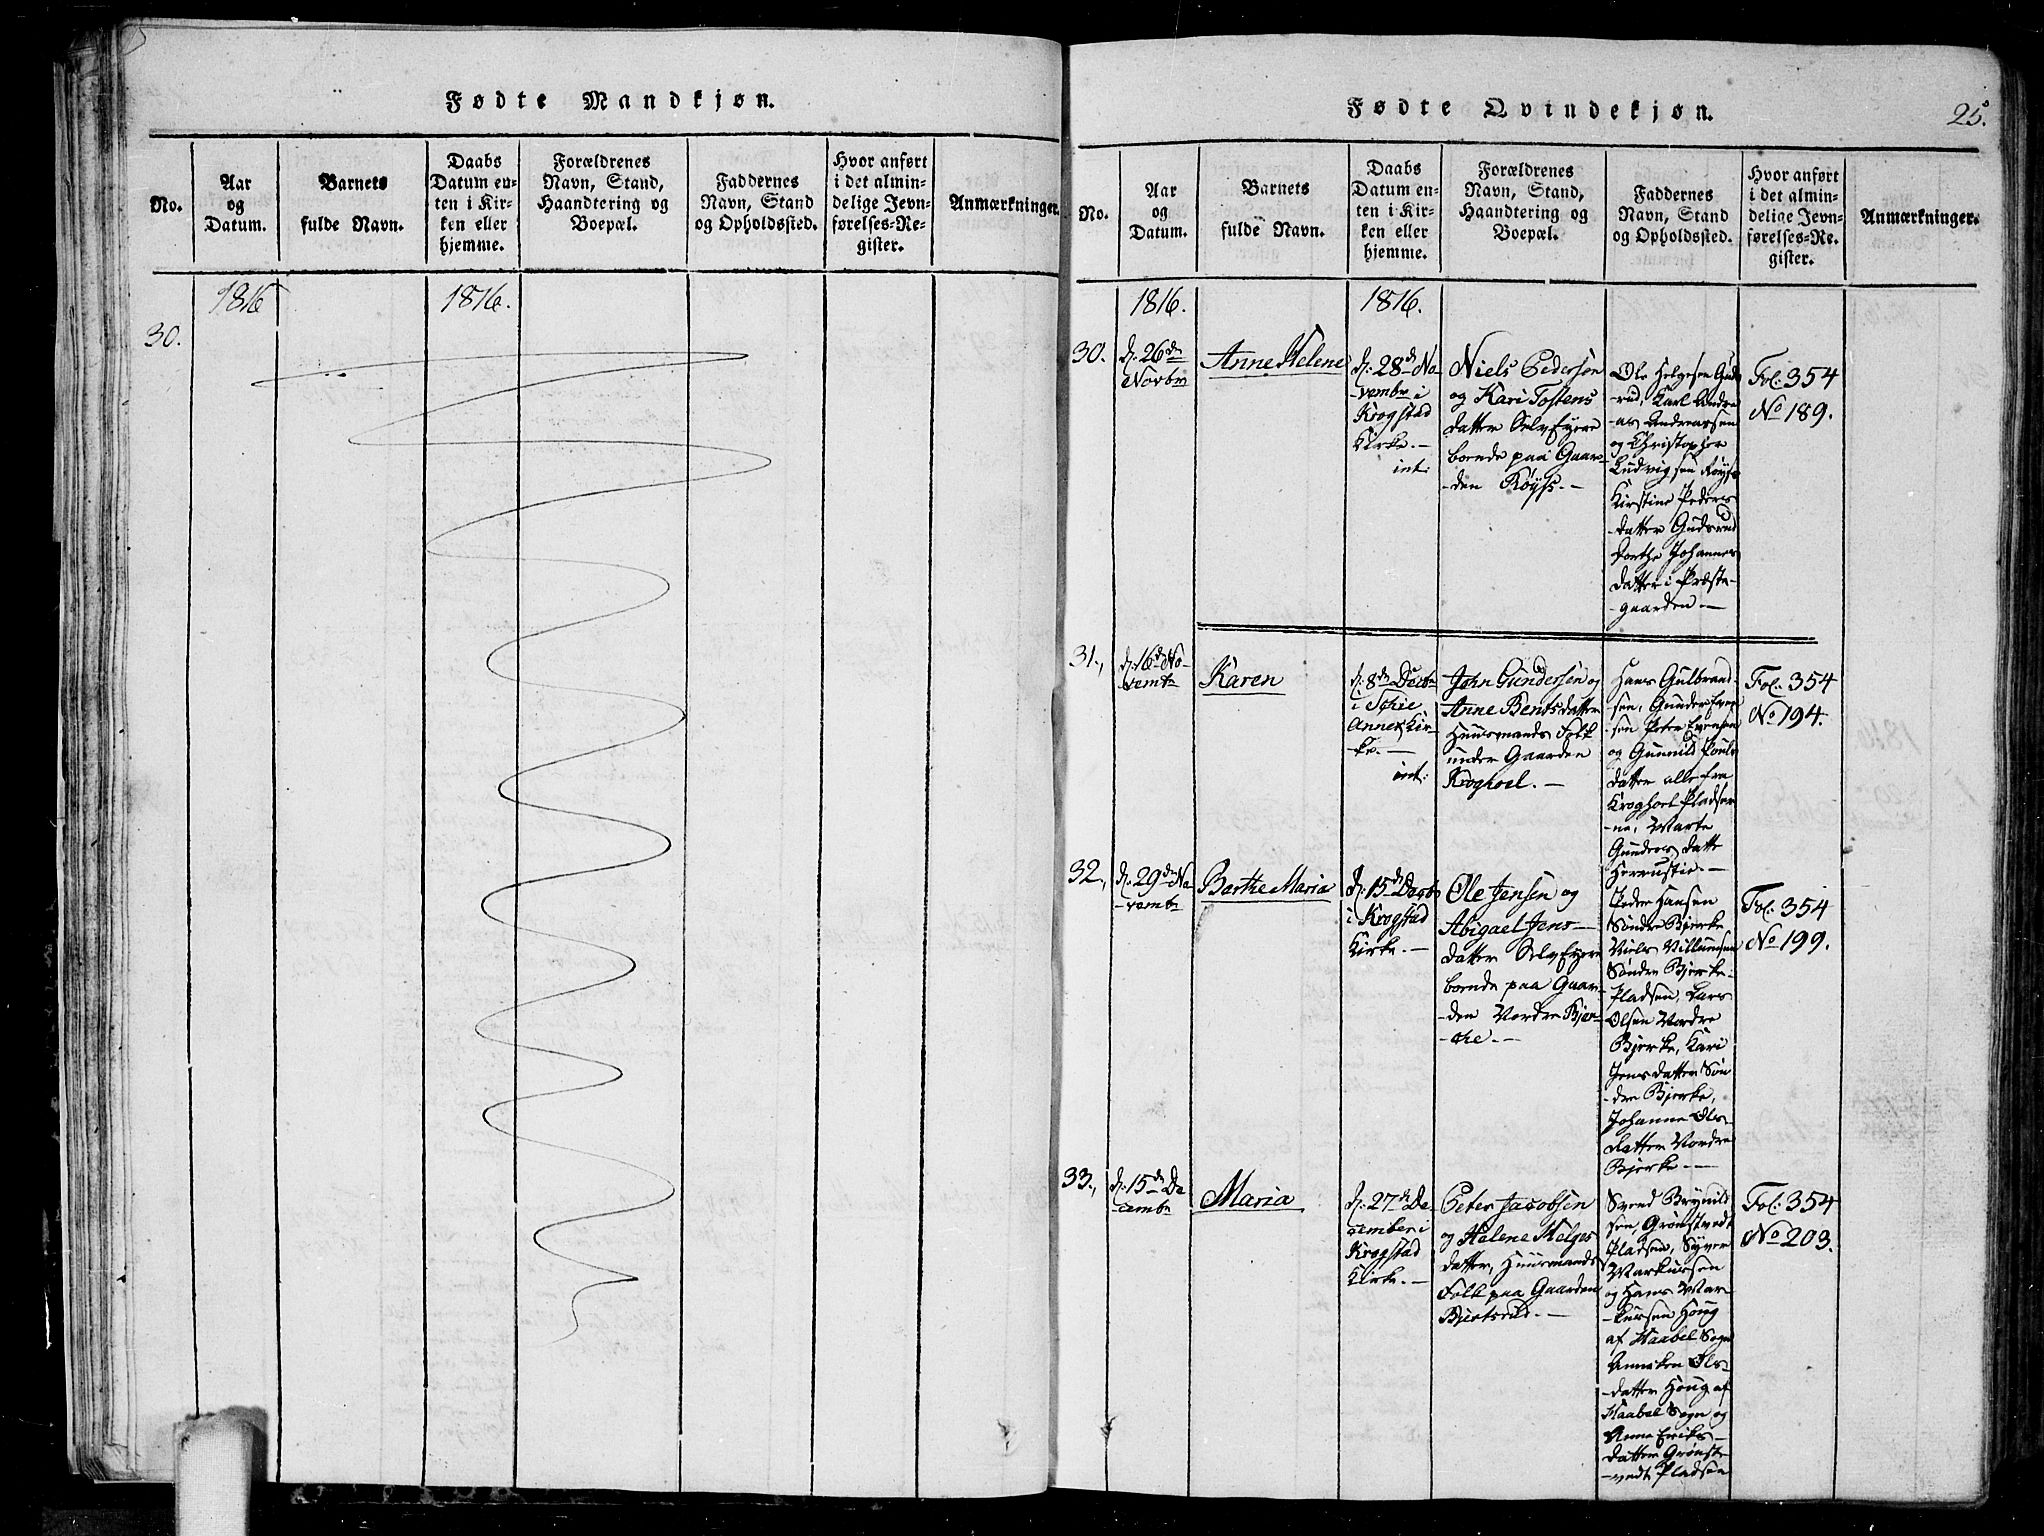 Fødte Mandkjøn.
No.
Aar
og
Datum.
Barnets
fulde Navn.
Daabs
Datum en-
ten i Kir-
ken eller
hjemme.
Forældrenes
Navn, Stand,
Haandtering og
Boepæl.
Faddernes
Navn, Stand
og Opholdssted.
Hvor anført
i det almin-
delige Jevn-
førelses-Re-
gister.
Anmærkninger.
1816
1816.
30.
Fødte Qvindekjøn.
25.
No.
Aar
og
Datum.
Barnets
fulde Navn.
Daabs
Datum en-
ten i Kir-
ken eller
hjemme.
Forældrenes
Navn, Stand,
Haandtering og
Boepæl.
Faddernes
Navn, Stand
og Opholdssted.
Hvor anført
i det almin-
delige Jevn-
førelses-Re-
gister.
Anmærkninger.
1816.
1816.
30.
d. 26de
Novbr
Anne Helene
d. 28de No-
vembr i
Krogstad
Kirke.-
int:
Niels Pedersen
og Kari Tostens
datter Selv Eyere
boende paa Gaar-
-den Röyss.-
Ole Helgesen Guds
-rud, Karl Andre
-as Andreassen
og Christopher
Ludvigsen Röyss
Kirstine Peders
-datter Gudsrud
Dorthe Johannes
datter i Præste-
-gaarden.-
Fol: 354
No 189.
31.,
d. 16de No-
vembr
Karen
d. 8de Decbr
i Schie
Annex Kir-
-ke.-
int:
John Gundersen og
Anne Bentsdatter
Huusmands Folk
under Gaarden
Kroghoel.-
Hans Gulbrand-
-sen, Gunder Even
-sen Peter Evensen
og Gunnild Pouls
datter alle fra
Kroghoel Pladser
-ne, Marte
Gunders datter
Herrustie.-
Fol: 354
No 194.
32.,
d. 29de No
-vembr
Barthe Maria
d. 15de Decbr
i Krogstad
Kirke.-
Ole Jensen og
Abigael Jens-
datter Selv Eyere
boende paa Gaar-
-den Nordre Bjer-
-che.-
Peder Hansen
Söndre Bjerke
Niels Villumsen
Söndre Bjerke-
Pladsen, Lars
Olsen Nordre
Bjerke, Kari
Jensdatter Sön
-dre Bjerke,
Johanne Ols-
datter Nordre
Bjerke.-
Fol: 354
No 199.
33.,
d. 15de De
-cembr
Maria
d. 27de De-
cember i
Krogstad
Kirke.-
Peter Jacobsen
og Helene Helges
datter, Huusmands
Folk paa Gaarden
Bjertsrud.-
Svend Brynild
sen, Grönstvedt
Pladsen, Syver
Markussen
og Hans Mar-
-kussen Houg
af Haabel Sogn
Anniken Ols-
-datter Houg af
Haabel Sogn og
Anne Eriks-
datter Grönst-
-vedt Pladsen
Fol: 354
No 203.